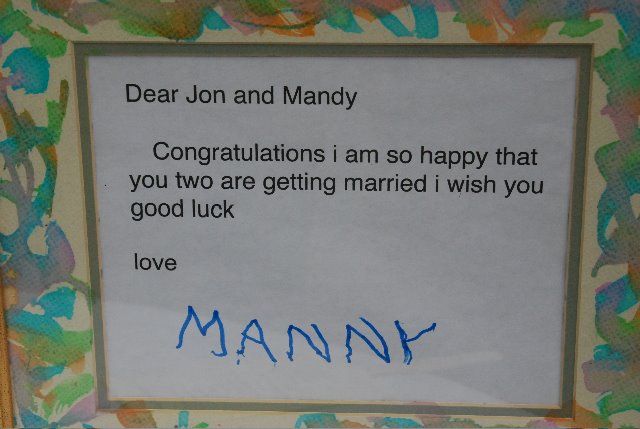 Dear Jon and Mandy
Congratulations i am so happy that
you two are getting married i wish you
good luck
love
MANNY